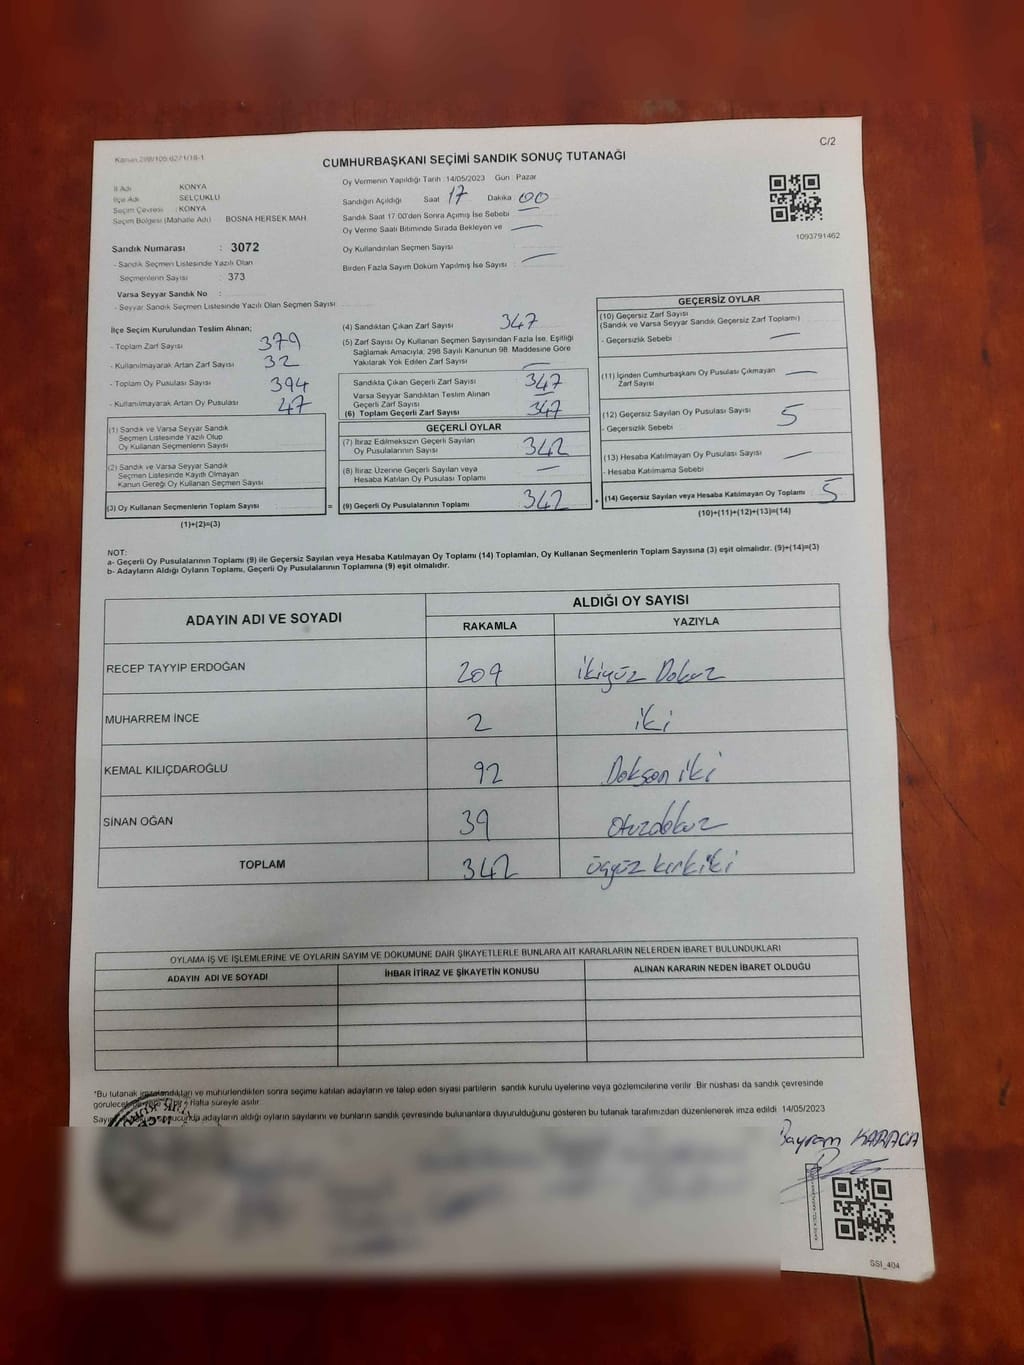 C/2
Kanun 298/105 6271/18-1
CUMHURBAŞKANI SEÇİMİ SANDIK SONUÇ TUTANAĞI
İl Adı : KONYA
İlçe Adı : SELÇUKLU
Seçim Çevresi : KONYA
Seçim Bölgesi (Mahalle Adı) BOSNA HERSEK MAH
Sandık Numarası : 3072
- Sandık Seçmen Listesinde Yazılı Olan
Seçmenlerin Sayısı : 373
Varsa Seyyar Sandık No :
- Seyyar Sandık Seçmen Listesinde Yazılı Olan Seçmen Sayısı
Oy Vermenin Yapıldığı Tarih : 14/05/2023 Gün : Pazar
Sandığın Açıldığı Saat 17 Dakika 00
Sandık Saat 17.00'den Sonra Açılmış İse Sebebi
Oy Verme Saati Bitiminde Sırada Bekleyen ve
Oy Kullandırılan Seçmen Sayısı
Birden Fazla Sayım Döküm Yapılmış İse Sayısı
1093791462
İlçe Seçim Kurulundan Teslim Alınan;
- Toplam Zarf Sayısı 379
- Kullanılmayarak Artan Zarf Sayısı 32
- Toplam Oy Pusulası Sayısı 394
- Kullanılmayarak Artan Oy Pusulası 47
(1) Sandık ve Varsa Seyyar Sandık
Seçmen Listesinde Yazılı Olup
Oy Kullanan Seçmenlerin Sayısı
(2) Sandık ve Varsa Seyyar Sandık
Seçmen Listesinde Kayıtlı Olmayan
Kanun Gereği Oy Kullanan Seçmen Sayısı
(3) Oy Kullanan Seçmenlerin Toplam Sayısı
(1)+(2)=(3)
(4) Sandıktan Çıkan Zarf Sayısı 347
(5) Zarf Sayısı Oy Kullanan Seçmen Sayısından Fazla İse, Eşitliği
Sağlamak Amacıyla, 298 Sayılı Kanunun 98. Maddesine Göre
Yakılarak Yok Edilen Zarf Sayısı
Sandıkta Çıkan Geçerli Zarf Sayısı 347
Varsa Seyyar Sandıktan Teslim Alınan
Geçerli Zarf Sayısı
(6) Toplam Geçerli Zarf Sayısı 347
GEÇERLİ OYLAR
(7) İtiraz Edilmeksizin Geçerli Sayılan
Oy Pusulalarının Sayısı 342
(8) İtiraz Üzerine Geçerli Sayılan veya
Hesaba Katılan Oy Pusulası Toplamı
= (9) Geçerli Oy Pusulalarının Toplamı 342
GEÇERSİZ OYLAR
(10) Geçersiz Zarf Sayısı
(Sandık ve Varsa Seyyar Sandık Geçersiz Zarf Toplamı)
- Geçersizlik Sebebi
(11) İçinden Cumhurbaşkanı Oy Pusulası Çıkmayan
Zarf Sayısı
(12) Geçersiz Sayılan Oy Pusulası Sayısı 5
- Geçersizlik Sebebi
(13) Hesaba Katılmayan Oy Pusulası Sayısı
- Hesaba Katılmama Sebebi
+ (14) Geçersiz Sayılan veya Hesaba Katılmayan Oy Toplamı 5
(10)+(11)+(12)+(13)=(14)
NOT:
a- Geçerli Oy Pusulalarının Toplamı (9) ile Geçersiz Sayılan veya Hesaba Katılmayan Oy Toplamı (14) Toplamları, Oy Kullanan Seçmenlerin Toplam Sayısına (3) eşit olmalıdır. (9)+(14)=(3)
b- Adayların Aldığı Oyların Toplamı, Geçerli Oy Pusulalarının Toplamına (9) eşit olmalıdır.
ADAYIN ADI VE SOYADI ALDIĞI OY SAYISI
RAKAMLA YAZIYLA
RECEP TAYYİP ERDOĞAN 209 ikiyüz Dokuz
MUHARREM İNCE 2 iki
KEMAL KILIÇDAROĞLU 92 Doksan iki
SİNAN OĞAN 39 Otuzdokuz
TOPLAM 342 üçyüz kırkiki
OYLAMA İŞ VE İŞLEMLERİNE VE OYLARIN SAYIM VE DÖKÜMÜNE DAİR ŞİKAYETLERLE BUNLARA AİT KARARLARIN NELERDEN İBARET BULUNDUKLARI
ADAYIN ADI VE SOYADI İHBAR İTİRAZ VE ŞİKAYETİN KONUSU ALINAN KARARIN NEDEN İBARET OLDUĞU
*Bu tutanak imzalandıktan ve mühürlendikten sonra seçime katılan adayların ve talep eden siyasi partilerin sandık kurulu üyelerine veya gözlemcilerine verilir. Bir nüshası da sandık çevresinde
hafta süreyle asılır.
adayların aldığı oyların sayılarını ve bunların sandık çevresinde bulunanlara duyurulduğunu gösteren bu tutanak tarafımızdan düzenlenerek imza edildi. 14/05/2023
Bayram KARACA
SSI_404